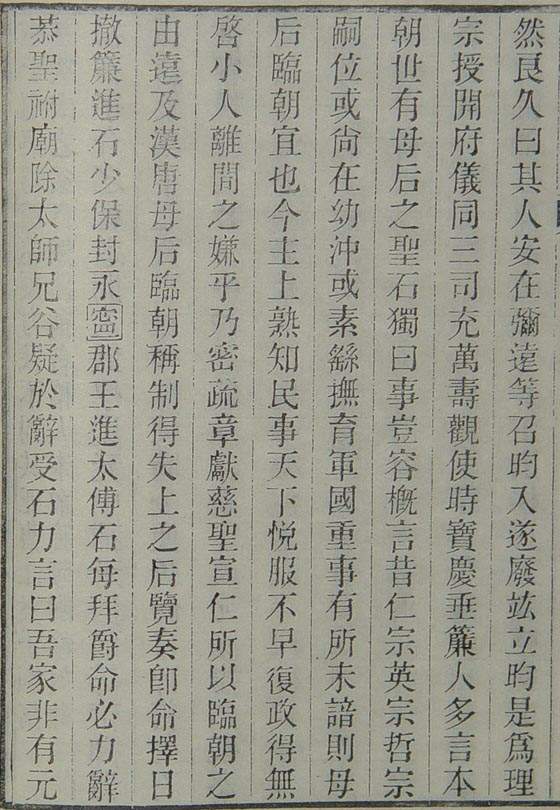 然良久曰其人安在彌遠等召昀入遂廢竑立昀是爲理
宗授開府儀同三司充萬壽觀使時寶慶垂簾人多言本
朝世有母后之聖石獨曰事豈容槪言昔仁宗英宗哲宗
嗣位或尙在幼沖或素繇撫育軍國重事有所未諳則母
后臨朝宜也今主上熟知民事天下悅服不早復政得無
啓小人離間之嫌乎乃密疏章獻慈聖宣仁所以臨朝之
由遠及漢唐母后臨朝稱制得失上之后覽奏卽命擇日
撤簾進石少保封永寍郡王進太傅石每拜爵命必力辭
恭聖祔廟除太師兄谷疑於辭受石力言曰吾家非有元